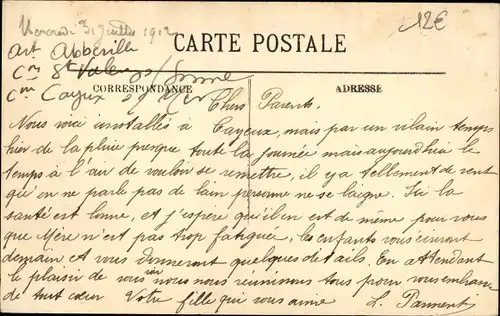 Mercredi 31 Juillet 1912
12€
Art Abbeville
CARTE POSTALE
Cne St Valery s/ Somme
CORRESPONDANCE
ADRESSE
Cne Cayeux s/ Mer
Chers Parents,
Nous voici installés à Cayeux, mais par un vilain temps
hier de la pluie presque toute la journée mais aujourd'hui le
temps à l'air de vouloir se remettre, il y a tellement de vent
qu'on ne parle pas de bain personne ne se baigne. Ici la
santé est bonne, et j'espère qu'il en est de même pour vous
que Mère n'est pas trop fatiguée, les enfants vous écriront
demain et vous donneront quelques détails. En attendant
le plaisir de vous voir nous nous réunissons tous pour vous embrasser
de tout cœur Votre fille qui vous aime L. Parment